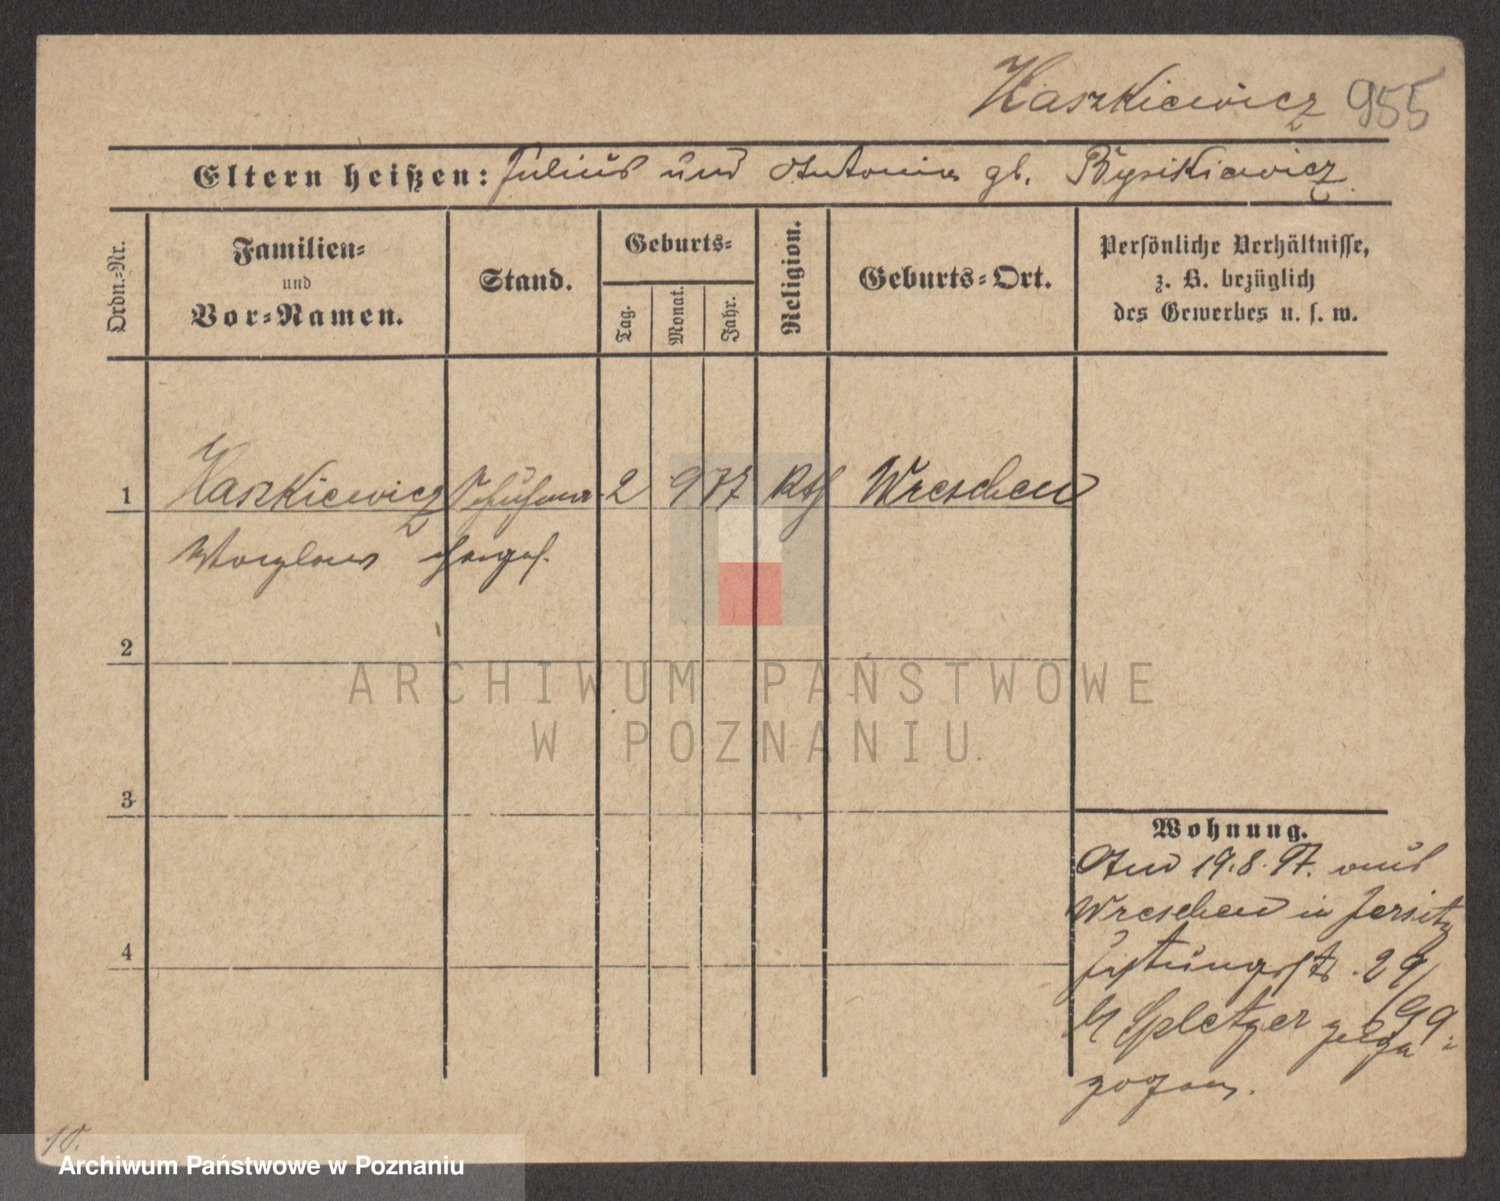 Haszkiewicz 955
Eltern heißen: Julius und Antonina gb. Bysikiewicz
Ordn.-Nr.
Familien-
und
Vor-Namen.
Stand.
Geburts-
Tag.
Monat.
Jahr.
Religion.
Geburts-Ort.
Persönliche Verhältnisse,
z. B. bezüglich
des Gewerbes u. s. w.
1 Haszkiewicz 2 9 77 Kth Wreschen
2
3
4
Wohnung.
Am 19.8.97. aus
Wreschen in Jersitz
29/
99
zogen.
10.
ARCHIWUM PAŃSTWOWE
W POZNANIU
Archiwum Państwowe w Poznaniu